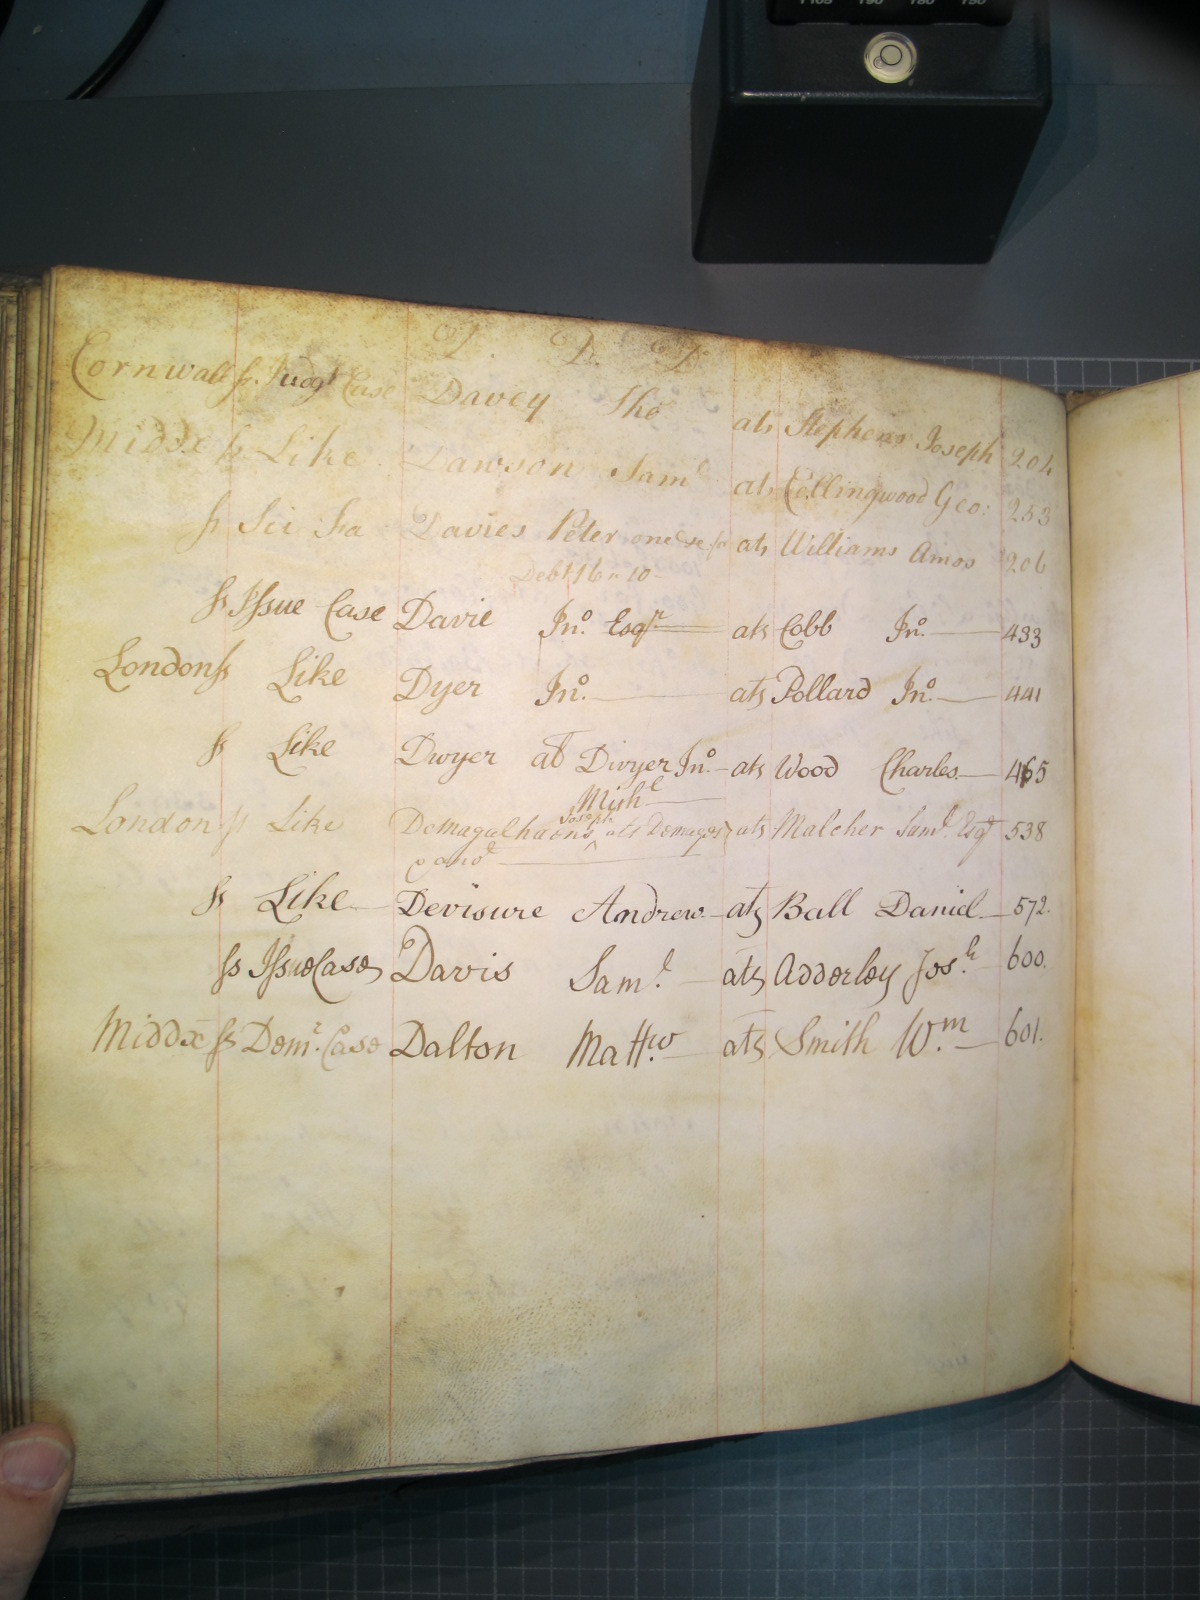 D. D. D.
Cornwall ss. Judgt Case Davey Tho ats Stephens Joseph 204
Middx ss Like Dawson Saml ats Collingwood Geo: 253
ss Sci Fa Davies Peter one &c for ats Williams Amos 206
Debt 16 " 10
ss Issue Case Davie Jno. Esqr ats Cobb Jno. 433
London ss Like Dyer Jno. ats Pollard Jno. 441
ss Like Dwyer als Divyer Jno. ats Wood Charles 465
Michl
London ss Like Demagalhaens Joseph als Demages ats Malcher Saml. Esqr 538
& anor
ss Like Devisure Andrew ats Ball Daniel 572.
ss Issue Case Davis Saml ats Adderley Josh 600.
Middx ss Demr. Case Dalton Mattw. ats Smith Wm. 601.